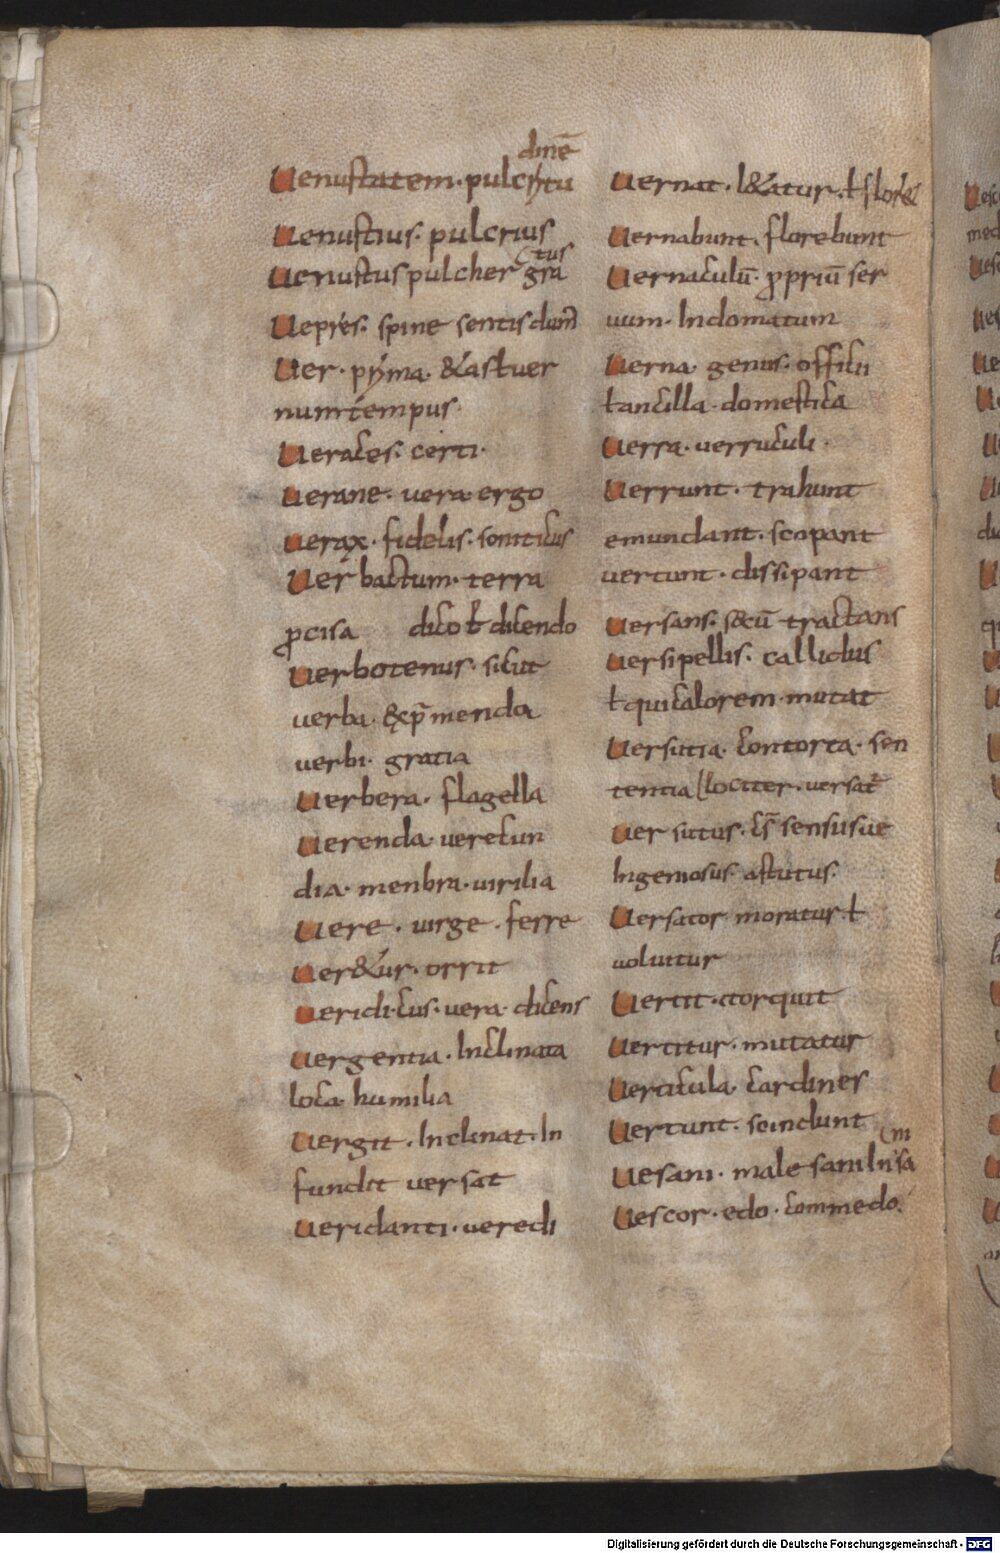 dinē
Uenustatem. pulcritu
Uenustius. pulcrius
Uenustus pulcher gra
tus
Uepres. spine sentis
Uer. prima. &astuer
num tempus.
Ueraces. certi.
Uerane. vera ergo
Uerax. fidelis.
Uerbactum. terra
ꝓcisa dico ł dicendo
Uerbotenus. sicut
verba
verbi. gratia
Uerbera. flagella
Uerenda. verecun
dia. menbra. virilia
Uere. virge. ferre
Uer&ur. orrit
Ueridicus. vera. dicens
Uergentia. Inclinata
loca humilia
Uergit. Inclinat. In
fundit versat
Ueridanti. veredi
Uernat. l&atur. ł flor&
Uernabunt. florebunt
Uernaculū. ꝓpriū ser
uum. Indomatum
Uerna. genus. officii
ł ancilla. domestica
Uerra. verruculi.
Uerrunt. trahunt
emundant. scopant
vertunt. dissipant
Uersans. tractans
Uersipellis. callidus
ł qui calorem. mutat
Uersutia. contorta. sen
tentia
Uersutus. sensusue
Ingeniosus. astutus.
Uersator moratur. ł
voluitur
Uertit. torquit
Uertitur. mutatur
Uerticula. cardines
Uertunt. scindunt
Uesani. male sani Insa
ni
Uescor. edo. commedo.
Digitalisierung gefördert durch die Deutsche Forschungsgemeinschaft - DFG